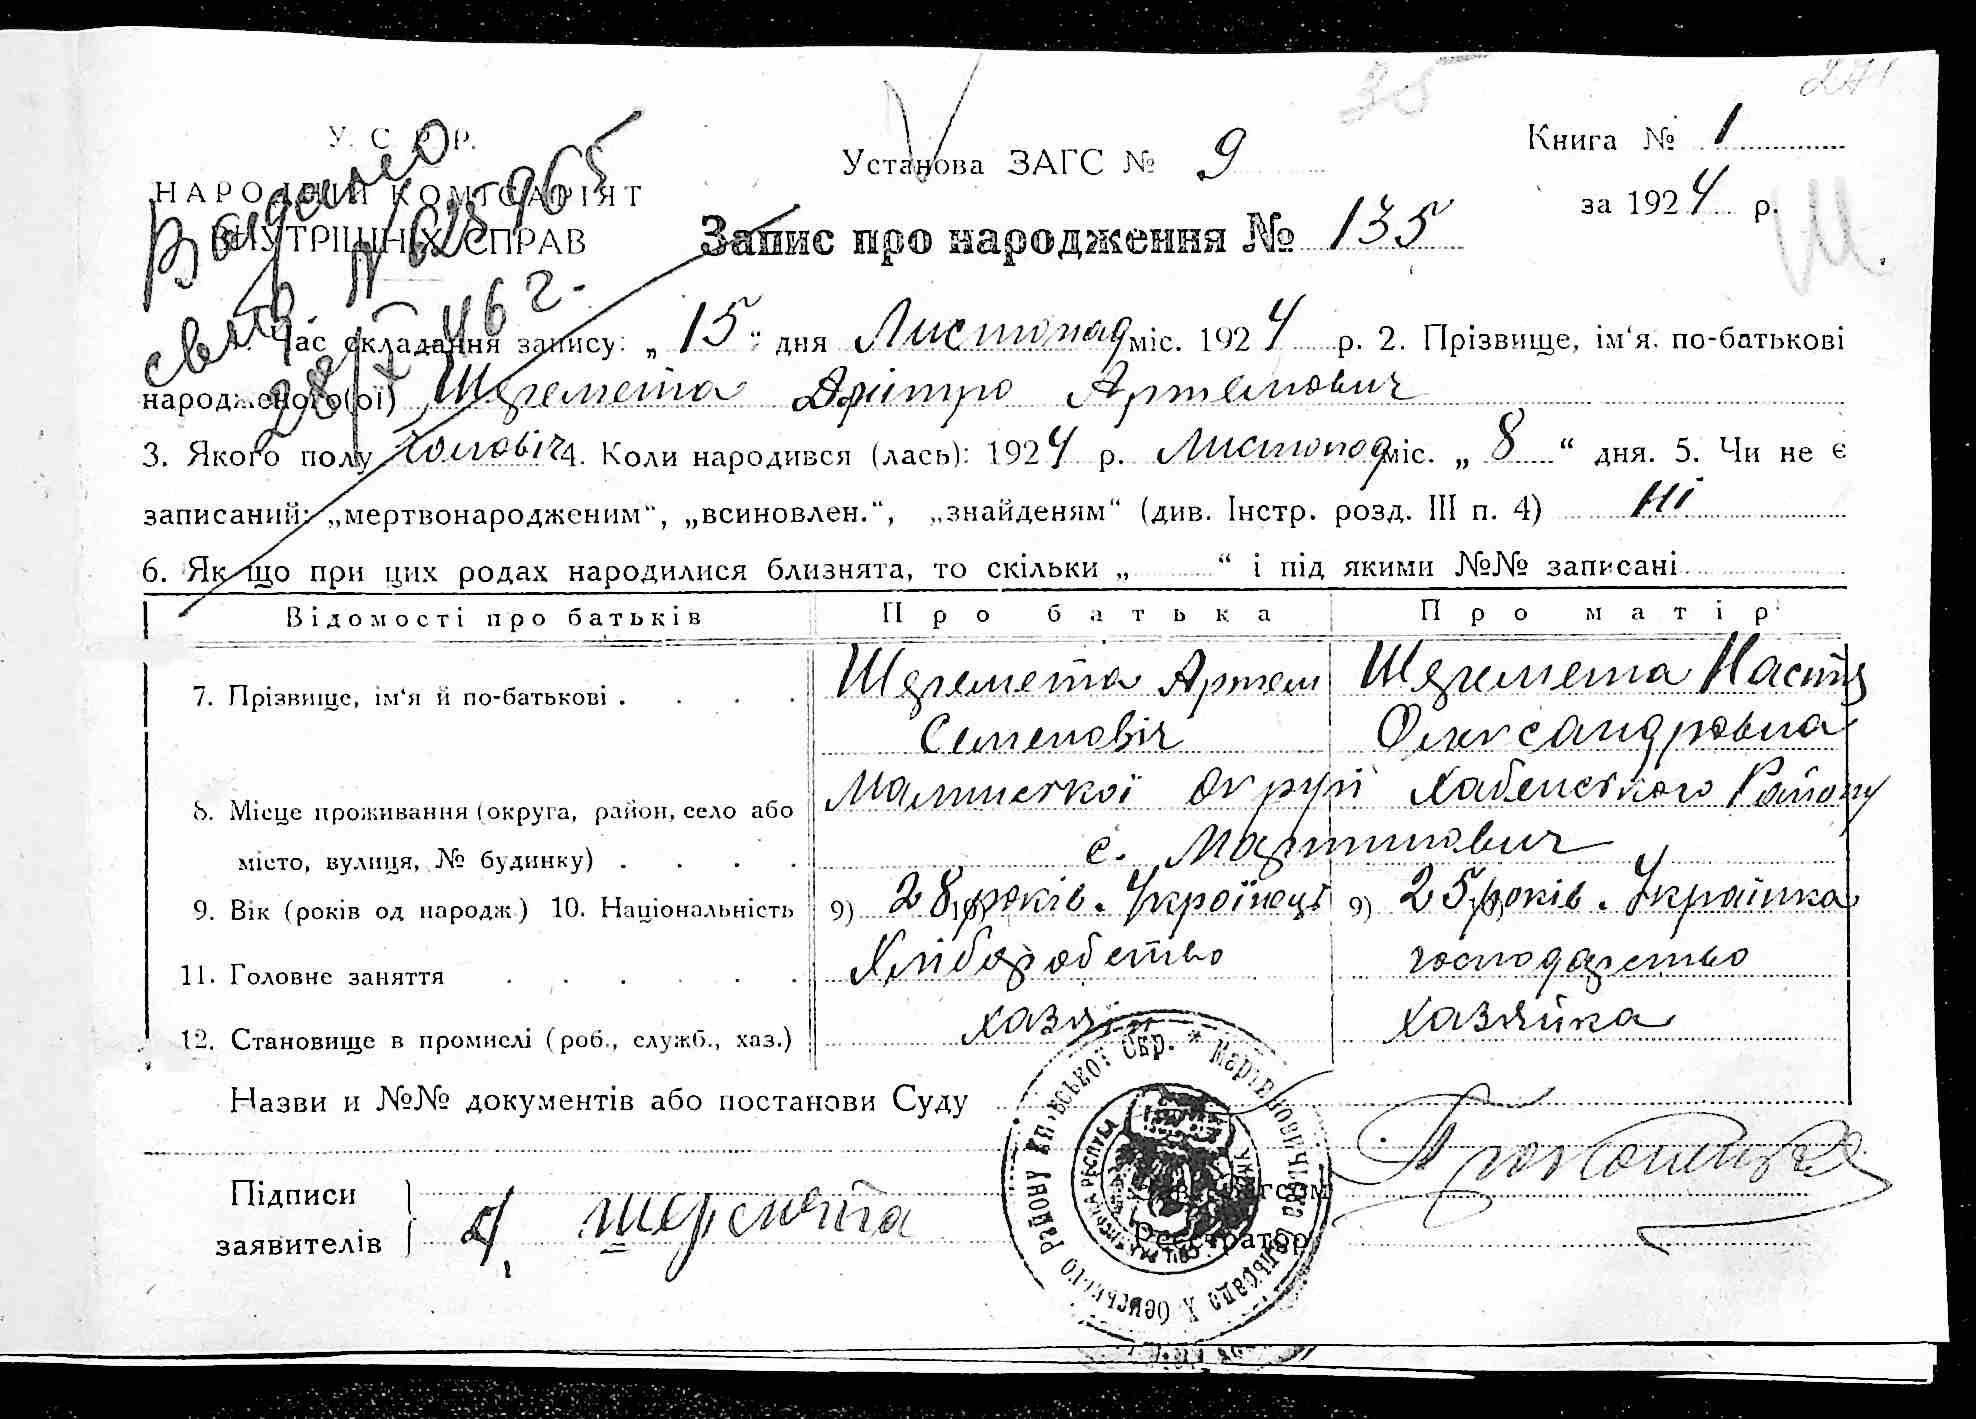 35
271
У. С. Р. Р.
НАРОДНІЙ КОМІСАРІЯТ
ВНУТРІШНІХ СПРАВ
Видано
свид. № 615965
28/X 46 г.
Установа ЗАГС № 9
Книга № 1
за 1924 р.
Ш.
Запис про народження № 135
1. Час складання запису: „ 15 “ дня Листопад міс. 1924 р. 2. Прізвище, ім‘я, по-батькові
народженого(ої) Шеремета Дмітро Артемович
3. Якого полу чоловіч 4. Коли народився (лась): 1924 р. Листопад міс. „ 8 “ дня. 5. Чи не є
записаний: „мертвонародженим“, „всиновлен.“, „знайденям“ (див. Інстр. розд. III п. 4) ні
6. Якщо при цих родах народилися близнята, то скільки „ “ і під якими №№ записані
Відомості про батьків Про батька Про матір
7. Прізвище, ім‘я й по-батькові . . . . Шеремета Артем Шеремета Настя
Семенович Олександровна
8. Місце проживання (округа, район, село або Малинської округи Хабенського Району
місто, вулиця, № будинку) . . . . с. Мартинович
9. Вік (років од народж.) 10. Національність 9) 28 років. Українець 9) 25 років. Українка
11. Головне заняття . . . . . . Хліборобство господарство
12. Становище в промислі (роб., служб., хаз.) хазяїн хазяйка
Назви и №№ документів або постанови Суду
Підписи
заявителів
А. шеремета
Загсом
Реєстратор